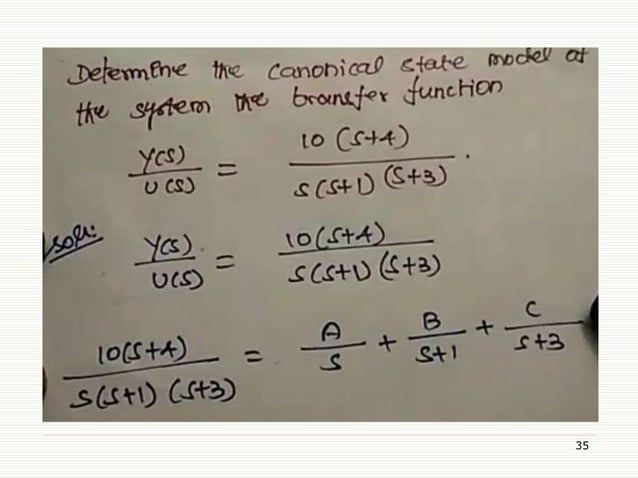 Determine the canonical state model of
the system the transfer function
Y(S) / U(S) = 10 (S+4) / S(S+1) (S+3) .
Soln: Y(S) / U(S) = 10(S+4) / S(S+1) (S+3)
10(S+4) / S(S+1) (S+3) = A / S + B / S+1 + C / S+3
35